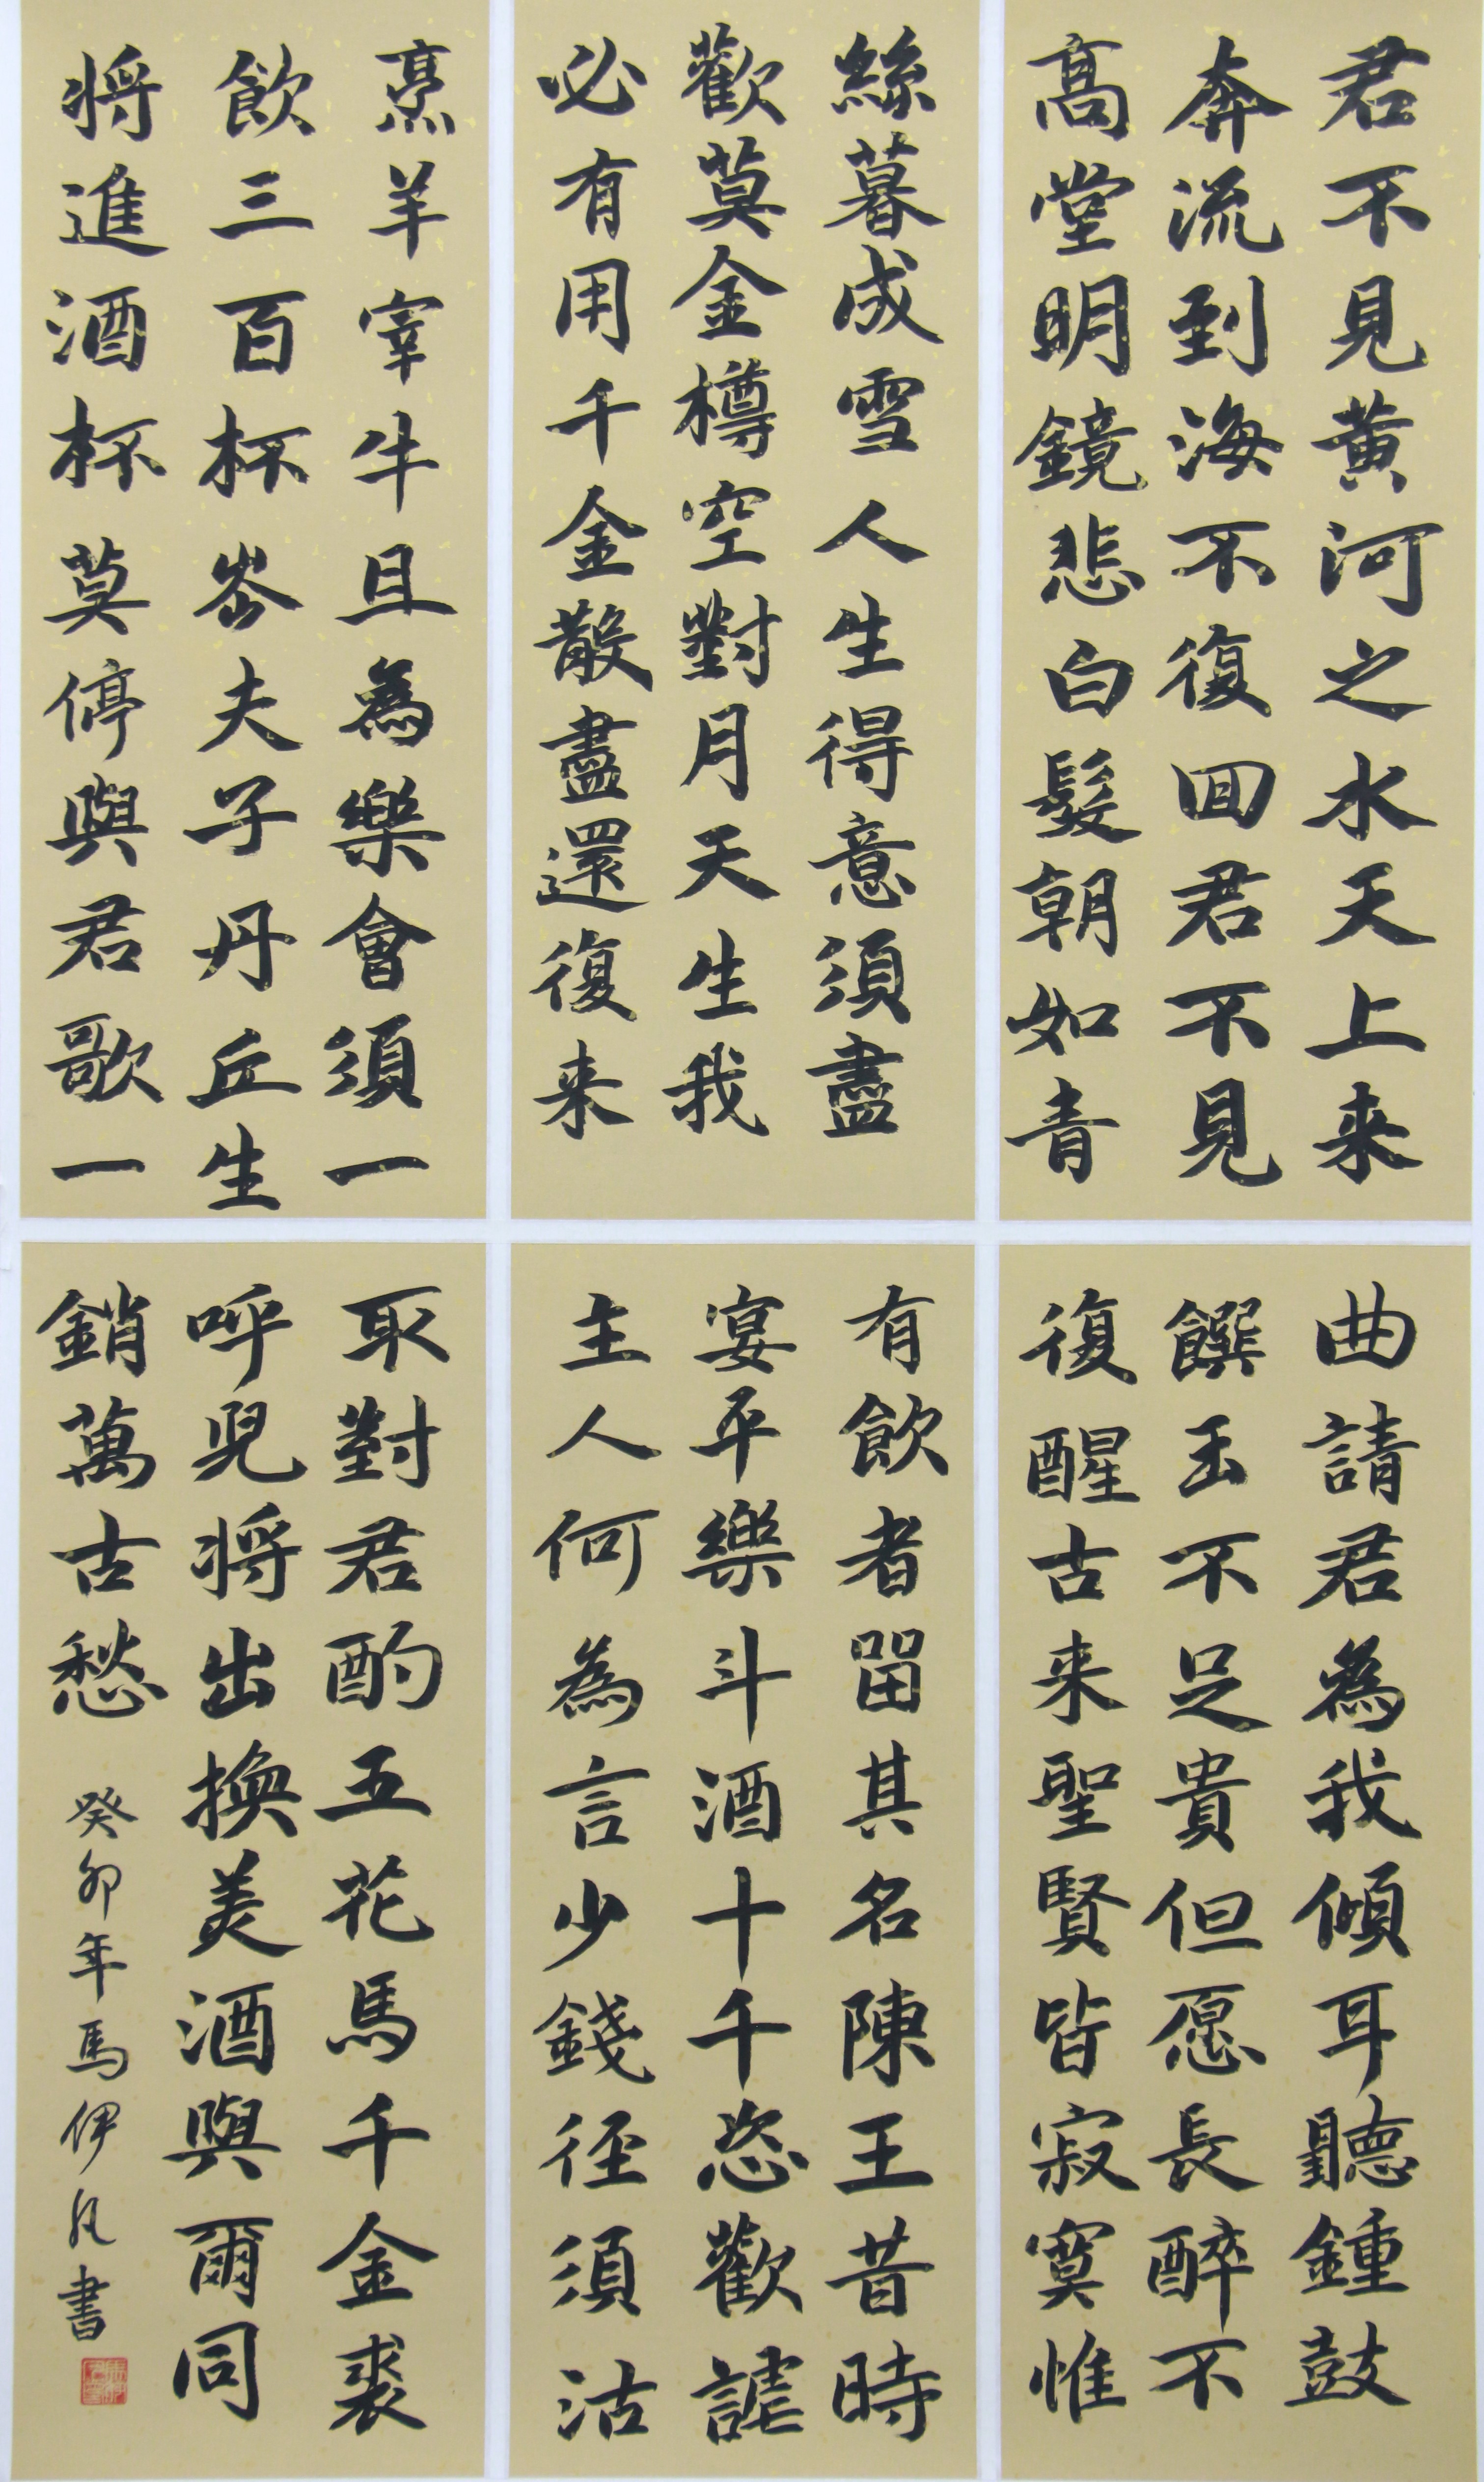 君不見黄河之水天上来
奔流到海不復回君不見
高堂明鏡悲白髮朝如青
絲暮成雪人生得意須盡
歡莫金樽空對月天生我
必有用千金散盡還復来
烹羊宰牛且為樂會須一
飲三百杯岑夫子丹丘生
将進酒杯莫停與君歌一
曲請君為我傾耳聽鍾鼓
饌玉不足貴但愿長醉不
復醒古来聖賢皆寂寞惟
有飲者留其名陳王昔時
宴平樂斗酒十千恣歡謔
主人何為言少錢径須沽
取對君酌五花馬千金裘
呼兒将出換美酒與爾同
銷萬古愁 癸卯年馬伊凡書